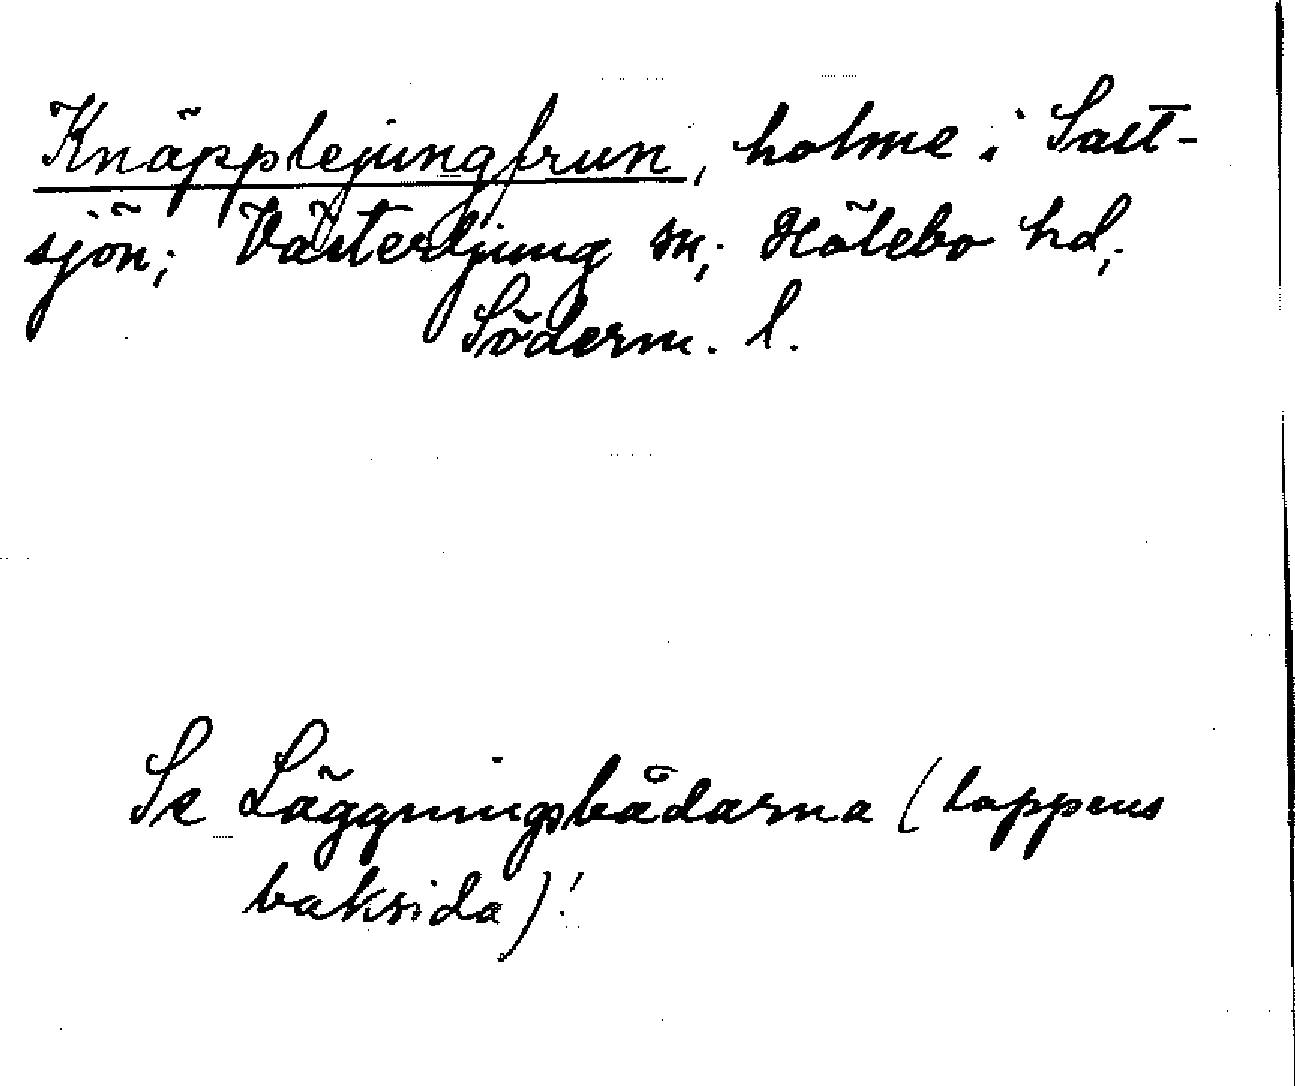 Knäpplejungfrun, holme i Salt-
sjön; Västerljung sn; Hölebo hd;
Söderm. l.
Se Läggningsbådarna (lappens
baksida)!